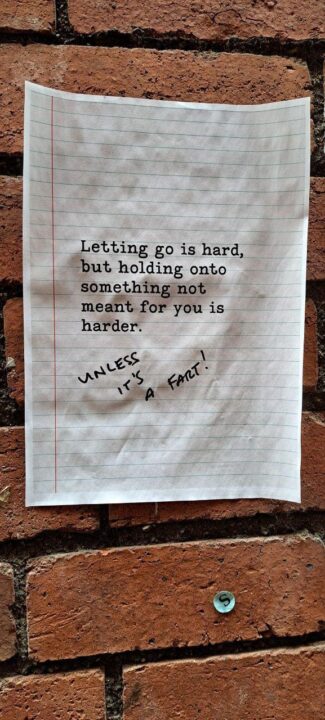 Letting go is hard,
but holding onto
something not
meant for you is
harder.
UNLESS
IT'S
A FART!
S